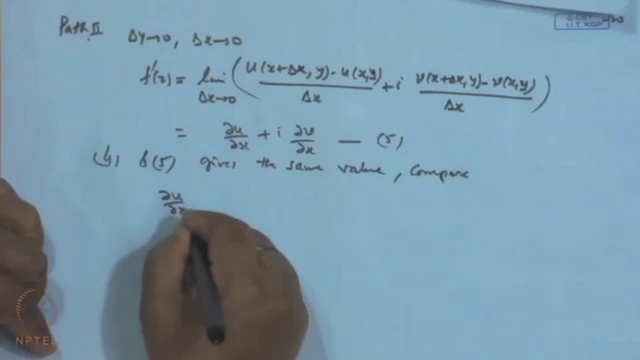 Path II Δy→0, Δx→0
f'(z) = lim Δx→0 ( (u(x+Δx, y) - u(x,y))/Δx + i (v(x+Δx, y) - v(x,y))/Δx )
= ∂u/∂x + i ∂v/∂x — (5)
(4) & (5) gives the same value, compare
∂u/∂x
NPTEL